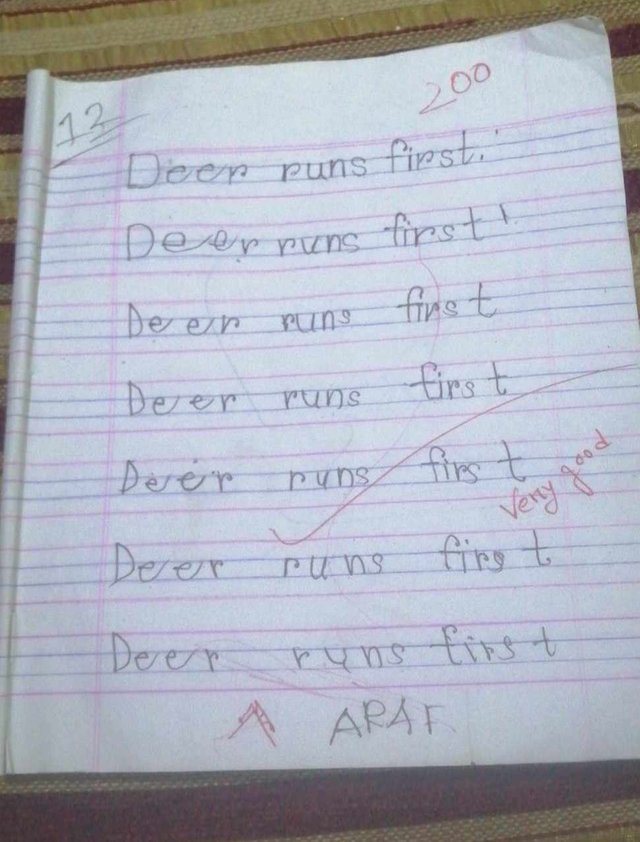 200
12
Deer runs first.
Deer runs first
Deer runs first
Deer runs first
Deer runs first
very good
Deer runs first
Deer runs first
ARAF